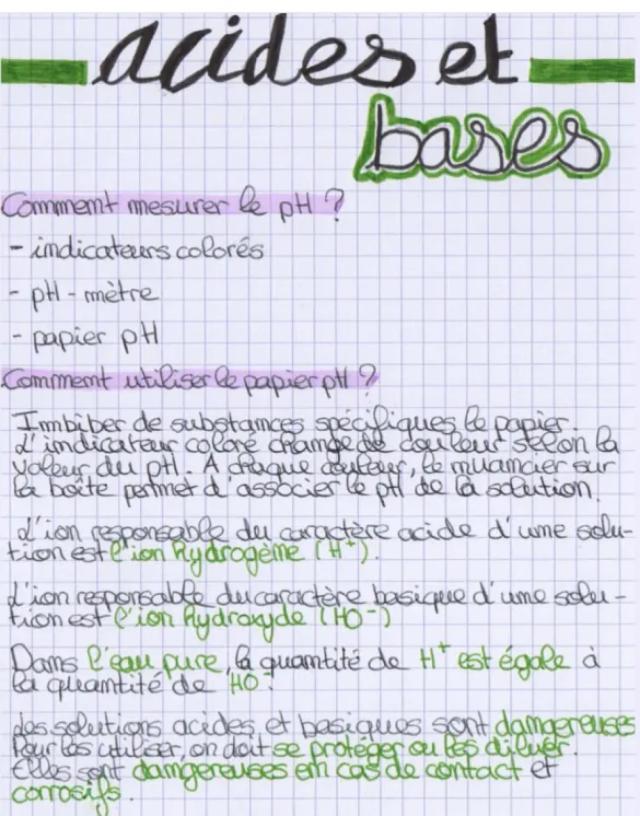 acides et
bases
Comment mesurer le pH ?
- indicateurs colorés
- pH-mètre
- papier pH
Comment utiliser le papier pH ?
Imbiber de substances spécifiques le papier.
L'indicateur coloré change de couleur selon la
valeur du pH. A chaque couleur, le nuancier sur
la boîte permet d'associer le pH de la solution.
L'ion responsable du caractère acide d'une solu-
tion est l'ion hydrogène (H⁺).
L'ion responsable du caractère basique d'une solu-
tion est l'ion hydroxyde (HO⁻)
Dans l'eau pure, la quantité de H⁺ est égale à
la quantité de HO⁻.
Les solutions acides et basiques sont dangereuses
Pour les utiliser, on doit se protéger ou les diluer.
Elles sont dangereuses en cas de contact et
corrosifs.